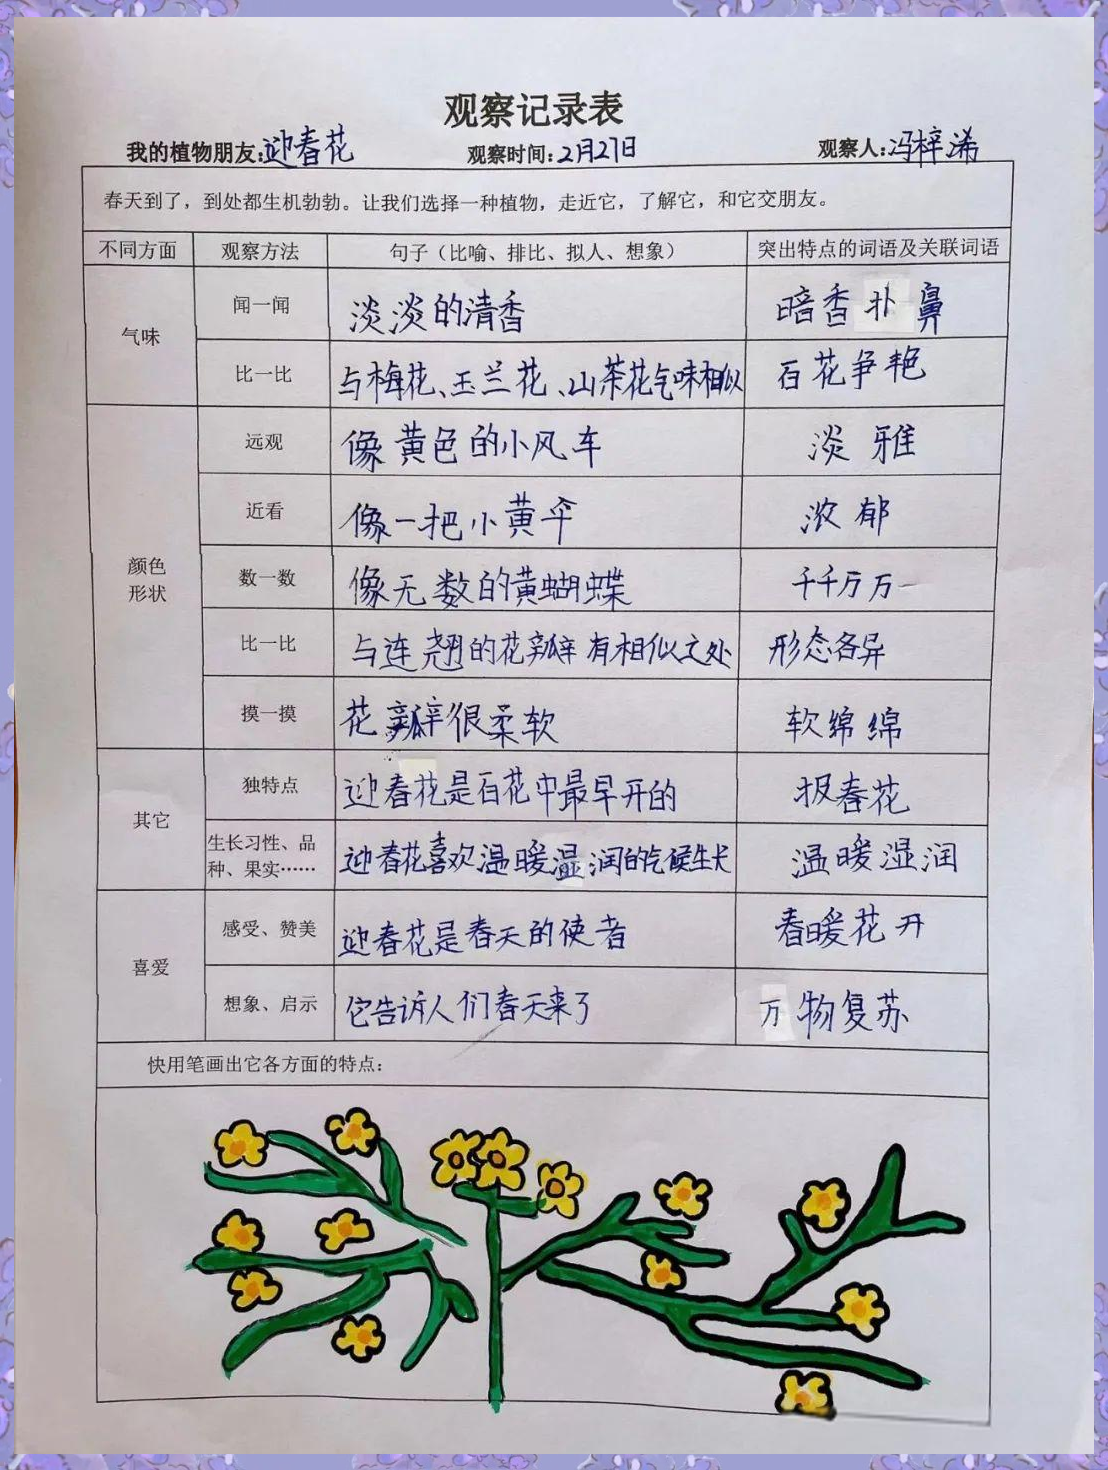 观察记录表
我的植物朋友:迎春花 观察时间:2月27日 观察人:冯梓浠
春天到了，到处都生机勃勃。让我们选择一种植物，走近它，了解它，和它交朋友。
不同方面 观察方法 句子（比喻、排比、拟人、想象） 突出特点的词语及关联词语
气味
闻一闻 淡淡的清香 暗香扑鼻
比一比 与梅花、玉兰花、山茶花气味相似 百花争艳
颜色
形状
远观 像黄色的小风车 淡雅
近看 像一把小黄伞 浓郁
数一数 像无数的黄蝴蝶 千千万万
比一比 与连翘的花瓣有相似之处 形态各异
摸一摸 花瓣很柔软 软绵绵
其它
独特点 迎春花是百花中最早开的 报春花
生长习性、品
种、果实…… 迎春花喜欢温暖湿润的气候生长 温暖湿润
喜爱
感受、赞美 迎春花是春天的使者 春暖花开
想象、启示 它告诉人们春天来了 万物复苏
快用笔画出它各方面的特点：